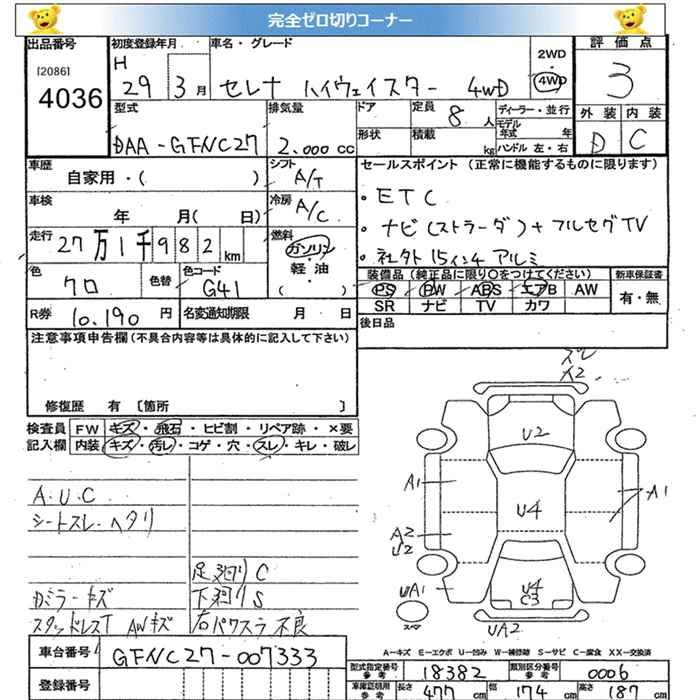 完全ゼロ切りコーナー
出品番号 初度登録年月 車名・グレード 2WD 評価点
[2086] H 29年 3月 セレナ ハイウェイスター 4WD 4WD 3
4036 型式 排気量 ドア 定員 8人 ディーラー・並行 外装 内装
DAA-GFNC27 2.000cc 形状 積載 kg モデル年式 年 ハンドル 左・右 D C
車歴 自家用・( ) シフト A/T セールスポイント (正常に機能するものに限ります)
車検 年 月( 日) 冷房 A/C ・ETC
走行 27万1千982km 燃料 ガソリン・軽油・( ) ・ナビ(ストラーダ)+フルセグTV
・社外15インチアルミ
色 クロ 色替 色コード G41 装備品 (純正品に限り○をつけてください) 新車保証書
PS PW ABS エアB AW 有・無
SR ナビ TV カワ
R券 10.190円 名変通知期限 月 日 後日品
注意事項申告欄 (不具合内容等は具体的に記入して下さい)
修復歴 有 〔箇所 〕
検査員 FW キズ・飛石・ヒビ割・リペア跡・×要
記入欄 内装 キズ・汚レ・コゲ・穴・スレ・キレ・破レ
A.U.C
シートスレ・ヘタリ
足廻りC
カミラーキズ 下廻りS
スタッドレスT AWキズ 右パワスラ不良
スレ
A2
U2
A1
U4
A1
A2
U2
UA1
U4
C3
スペア
UA2
A-キズ E-エクボ U-凹み W-補修跡 S-サビ C-腐食 XX-交換済
車台番号 GFNC27-007333
型式指定番号 参考 18382 類別区分番号 参考 0006
登録番号 車庫証明用 参考 長さ 477cm 幅 174cm 高さ 187cm